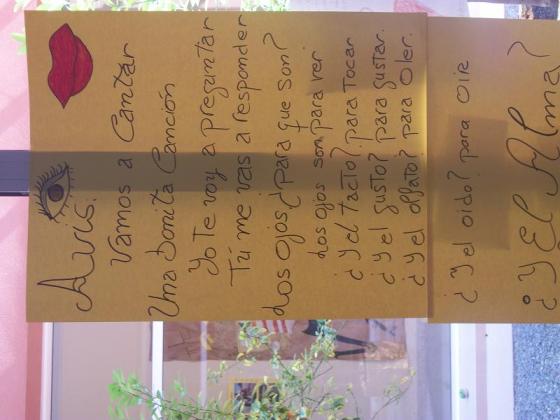 Avis:
Vamos a Cantar
Una bonita Canción
Yo Te voy a preguntar
Tú me vas a responder
Los ojos ¿para que son?
Los ojos son para ver
¿y el Tacto? para Tocar
¿y el gusto? para gustar.
¿y el olfato? para oler.
¿y el oido? para oir
¿y El Alma?